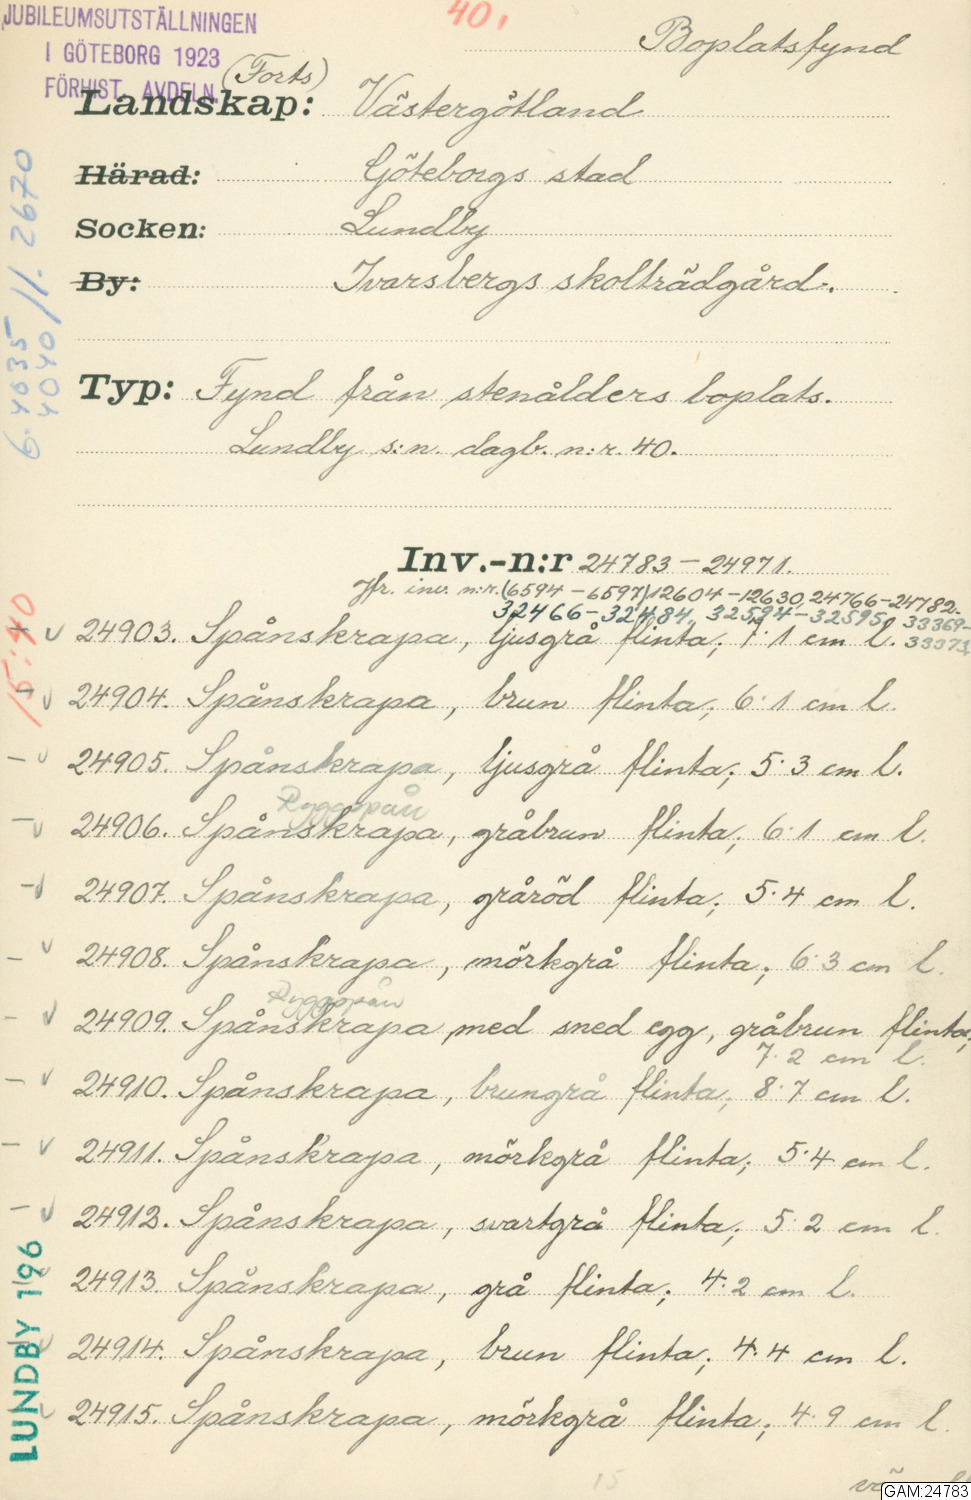 JUBILEUMSUTSTÄLLNINGEN
I GÖTEBORG 1923
FÖRHIST. AVDELN.
40.
Boplatsfynd
(Forts)
Landskap: Västergötland
Härad: Göteborgs stad
Socken: Lundby
By: Ivarsbergs skolträdgård.
Typ: Fynd från stenålders boplats.
Lundby s:n. dagb. n:r. 40.
Inv.-n:r 24783 – 24971.
Jfr. inv. n:r. (6594 – 6597) 12604 – 12630, 24766 – 24782.
32466 – 32484, 32594 – 32595, 33369–
33373
24903. Spånskrapa, ljusgrå flinta; 7.1 cm l.
24904. Spånskrapa, brun flinta; 6.1 cm l.
24905. Spånskrapa, ljusgrå flinta; 5.3 cm l.
Ryggspån
24906. Spånskrapa, gråbrun flinta; 6.1 cm l.
24907. Spånskrapa, gråröd flinta; 5.4 cm l.
24908. Spånskrapa, mörkgrå flinta; 6.3 cm l.
Ryggspån
24909. Spånskrapa, med sned egg, gråbrun flinta;
7.2 cm l.
24910. Spånskrapa, brungrå flinta; 8.7 cm l.
24911. Spånskrapa, mörkgrå flinta; 5.4 cm l.
24912. Spånskrapa, svartgrå flinta; 5.2 cm l.
24913. Spånskrapa, grå flinta; 4.2 cm l.
24914. Spånskrapa, brun flinta; 4.4 cm l.
24915. Spånskrapa, mörkgrå flinta; 4.9 cm l.
15
GAM:24783
6.4035 //. 2670
4040
15:40
LUNDBY 196